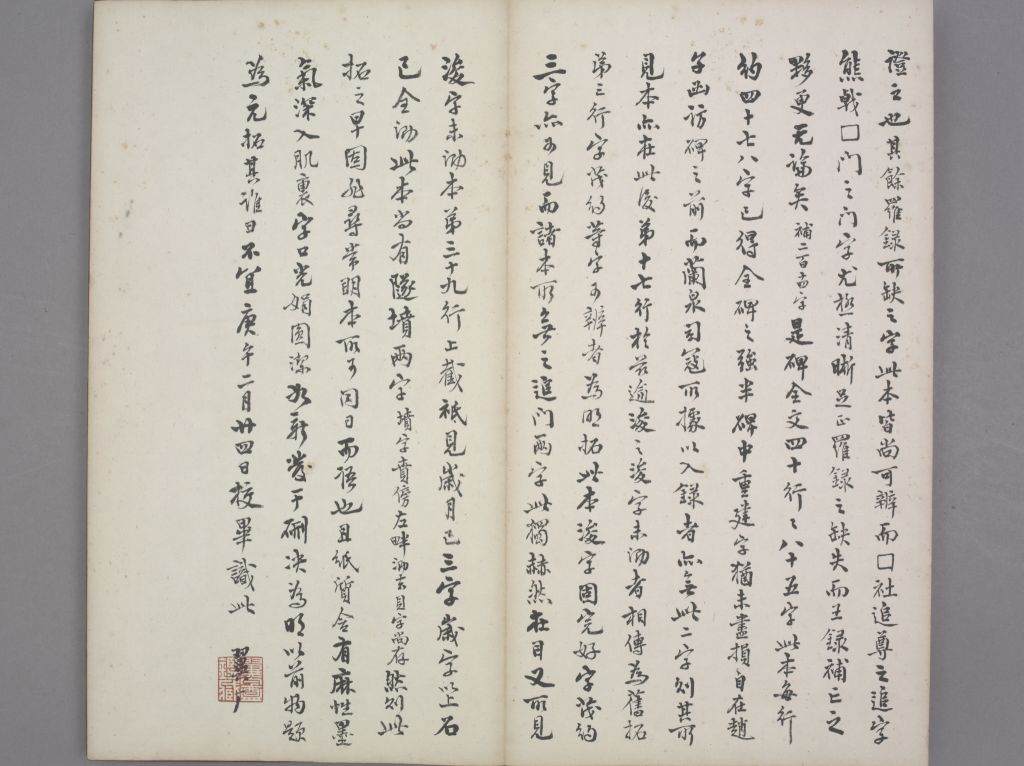 證之也其餘羅錄所缺之字此本皆尚可辨而囗社追尊之追字
熊戟囗門之門字尤極清晰足正羅錄之缺失而王錄補亡之
黟更无論矣補二百五字是碑全文四十行〻八十五字此本每行
約四十七八字已得全碑之強半碑中重建字猶未盡損自在趙
子函訪碑之前而蘭泉司寇所據以入錄者亦無此二字則其所
見本亦在此後第十七行於若逾浚之浚字未泐者相傳為舊拓
第三行字茂約等字可辨者為明拓此本浚字固完好字茂約
三字亦可見而諸本所無之追门兩字此獨赫然在目又所見
浚字未泐本第三十九行上截祇見歲月已三字歲字以上石
已全泐此本尚有隧墳兩字墳字賁傍左畔泐去貝字尚存然則此
拓之早固非尋常明本所可同日而語也且紙質含有麻性墨
氣深入肌裏字口光娟圓潔如新發于硎決為明以前物題
為元拓其誰曰不宜庚午二月廿四日校畢識此